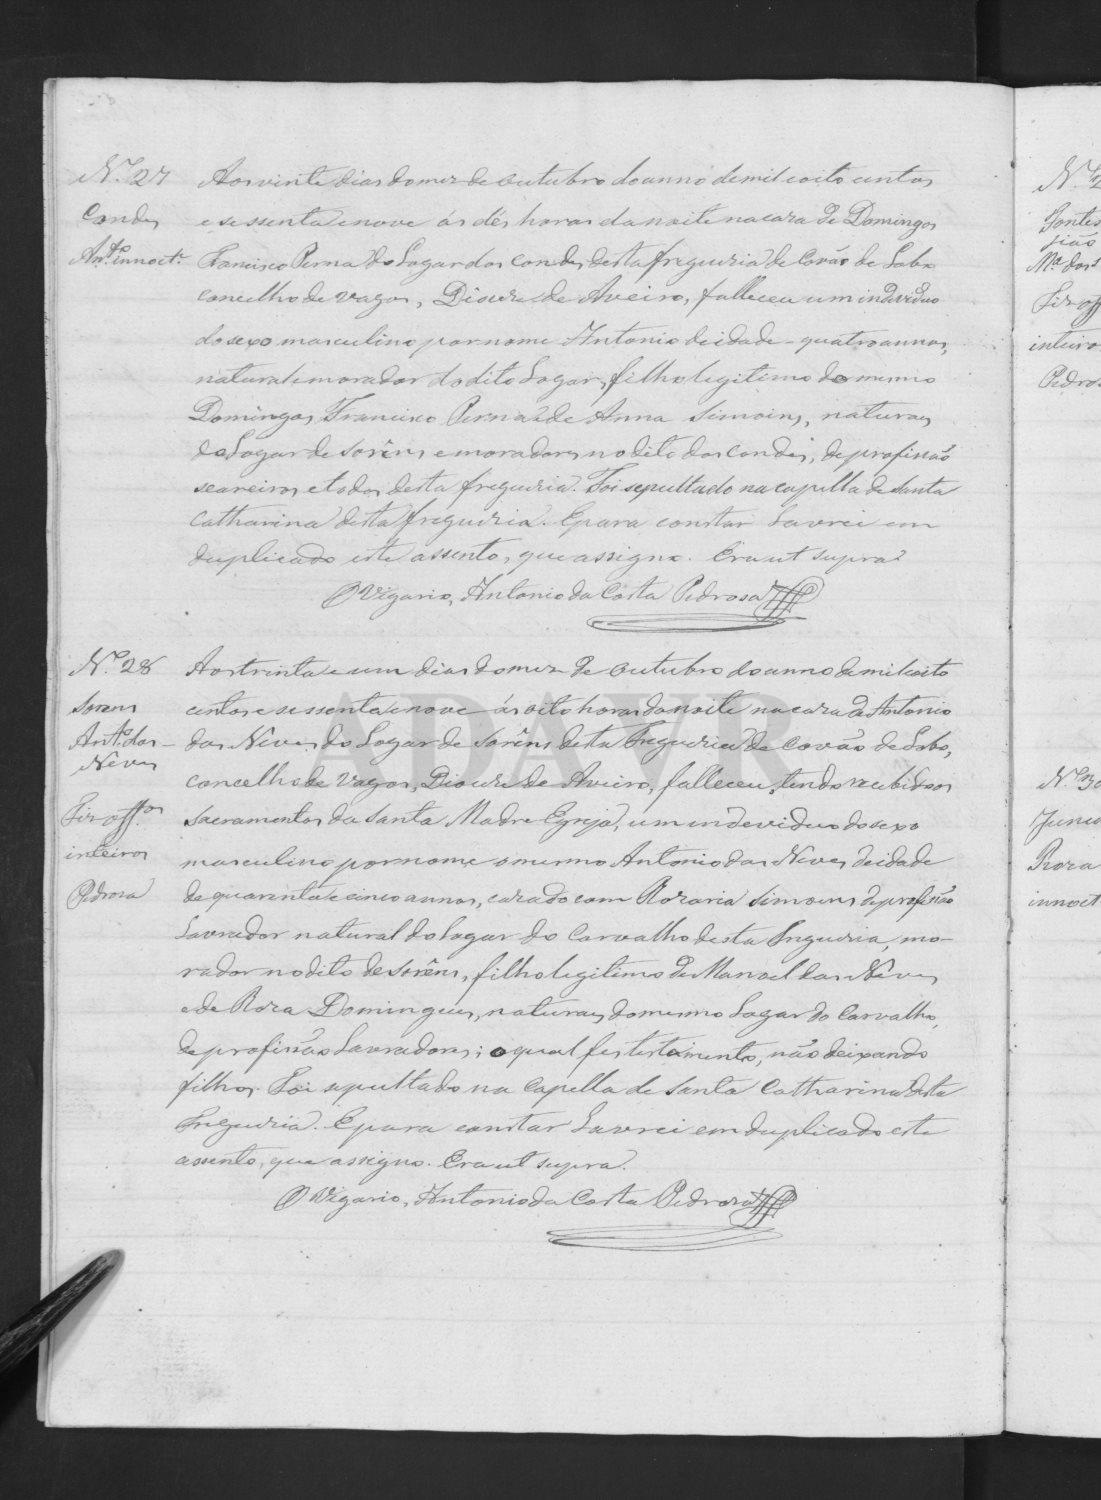 N.º 27
Condes
Ant.º innoct.e
Aos vinte dias do mez de Outubro do anno de mil oito centos
e sessenta e nove ás dés horas da noite na caza de Domingos
Francisco Perna do Lugar dos Condes desta freguezia de Covão do Lobo
concelho de Vagos, Diocese de Aveiro, falleceu um individuo
do sexo masculino por nome Antonio de idade quatro annos,
natural e morador do dito Lugar, filho legitimo do mesmo
Domingos Francisco Perna e de Anna Simoins, naturaes
do Lugar de Sorêns e moradores no dito dos Condes, de profissão
seareiros e todos desta freguezia. Foi sepultado na capella de Santa
Catharina desta freguezia. E para constar Lavrei em
duplicado este assento, que assigno. Era ut supra
O Vigario, Antonio da Costa Pedrosa
N.º 28
Sorens
Ant.º das
Neves
Fiz off.os
inteiros
Pedrosa
Aos trinta e um dias do mez de Outubro do anno de mil oito
centos e sessenta e nove ás oito horas da noite na caza de Antonio
das Neves do Lugar de Sorêns desta Freguezia de Covão do Lobo,
concelho de Vagos, Diocese de Aveiro, falleceu, tendo recebido os
Sacramentos da Santa Madre Egreja, um indeviduo do sexo
masculino por nome o mesmo Antonio das Neves de idade
de quarenta e cinco annos, cazado com Rozaria Simoins de profissão
Lavrador natural do Lugar do Carvalho desta Freguezia, mo-
rador no dito de Sorêns, filho legitimo de Manoel das Neves
e de Roza Domingues, naturaes do mesmo Lugar do Carvalho,
de profissão Lavradores; o qual fes testamento, não deixando
filhos. Foi sepultado na Capella de Santa Catharina desta
Freguezia. E para constar Lavrei em duplicado este
assento, que assigno. Era ut supra.
O Vigario, Antonio da Costa Pedrosa
ADAVR
Fontes
M.ª dos
Fiz off
inteiro
Pedros
N.º 30
Junc
Roza
innoct